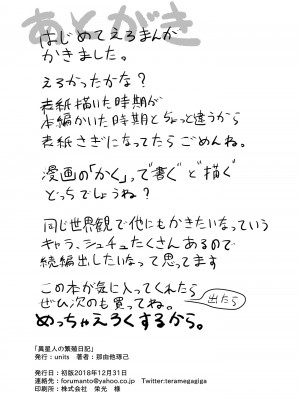 あとがき
はじめてえろまんが
かきました。
えろかったかな？
表紙描いた時期が
本編かいた時期とちょっと違うから
表紙さぎになってたらごめんね。
漫画の「かく」って「書く」と「描く」
どっちでしょうね？
同じ世界観で他にもかきたいなっていう
キャラ、シュチュたくさんあるので
続編出したいなって思ってます
この本が気に入ってくれたら
ぜひ次のも買ってね。
出たら
めっちゃえろくするから。
「異星人の繁殖日記」
発行：units　著者：那由他琢己
発行日：初版2018年12月31日
連絡先：forumanto@yahoo.co.jp　Twitter:teramegagiga
印刷所：株式会社　栄光　様